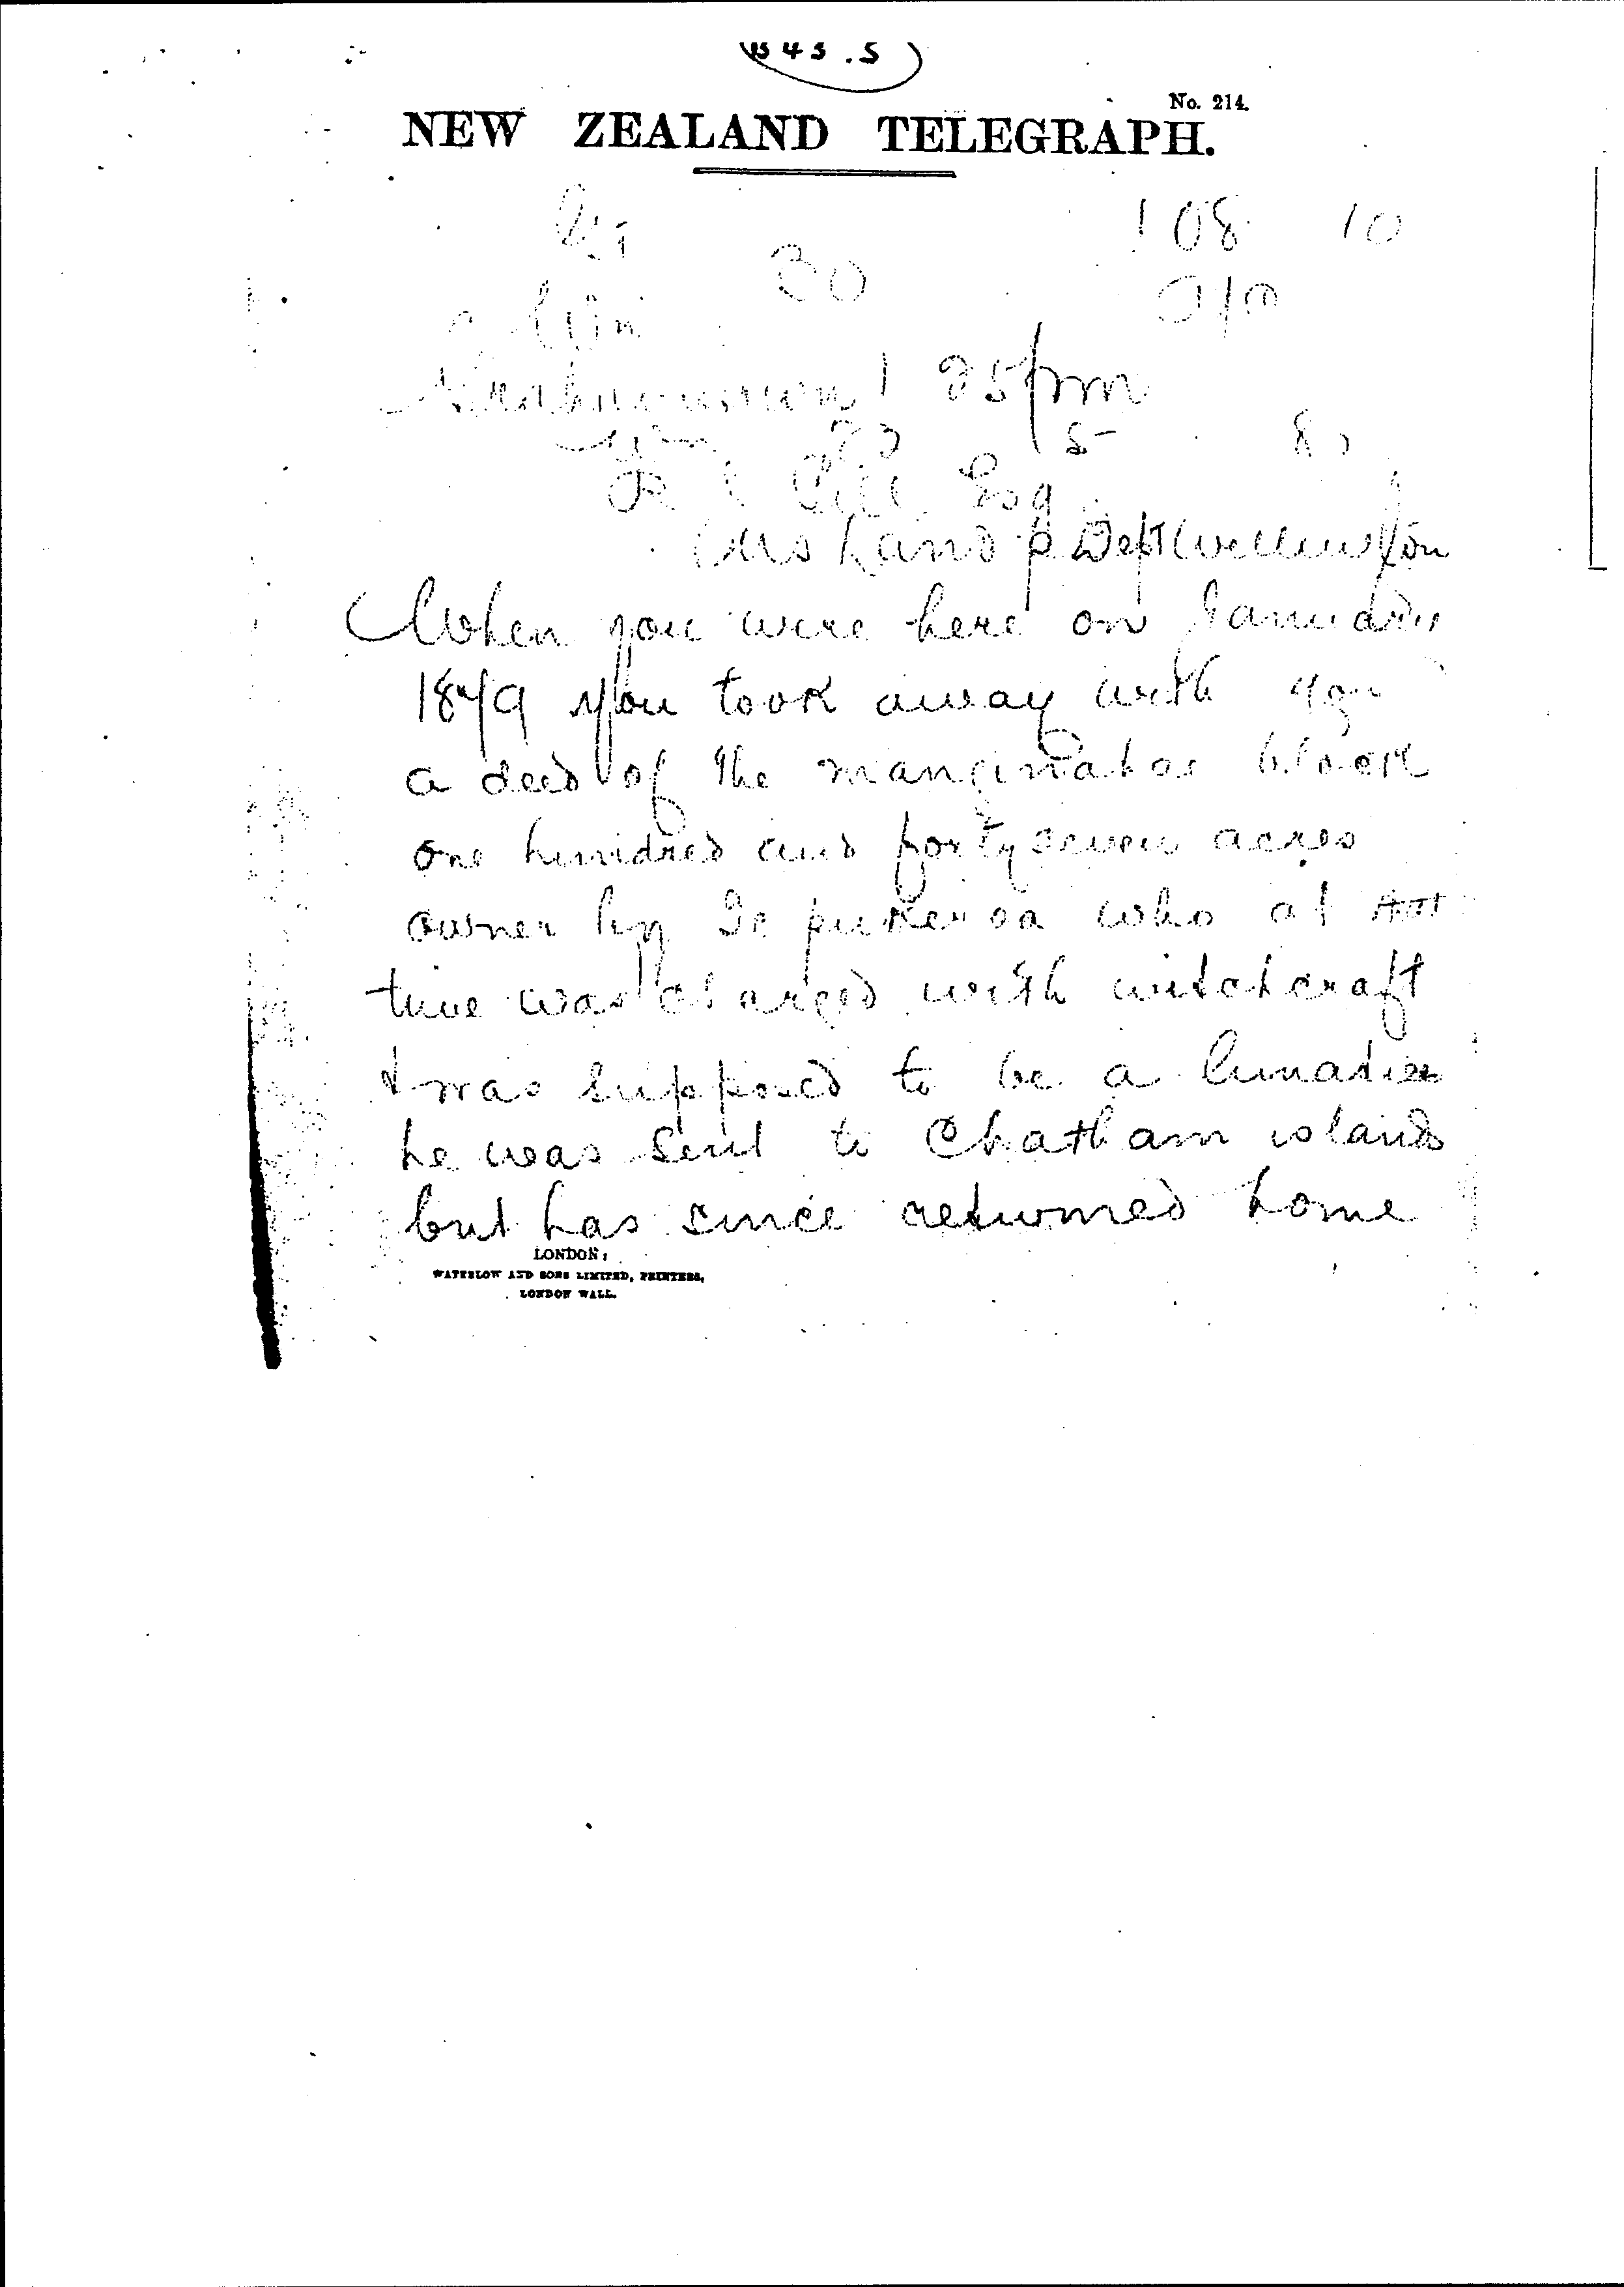 B 43.5
No. 214.
NEW ZEALAND TELEGRAPH.
108 10
30
1 25 pm
5 80
Gill Esq
Land P Dept Wellington
When you were here on January
1879 you took away with you
a deed of the block
one hundred and forty seven acres
owner by Te pukeroa who at that
time was charged with witchcraft
& was supposed to be a lunatic
he was sent to Chatham islands
but has since returned home
LONDON:
WATERLOW AND SONS LIMITED, PRINTERS,
LONDON WALL.